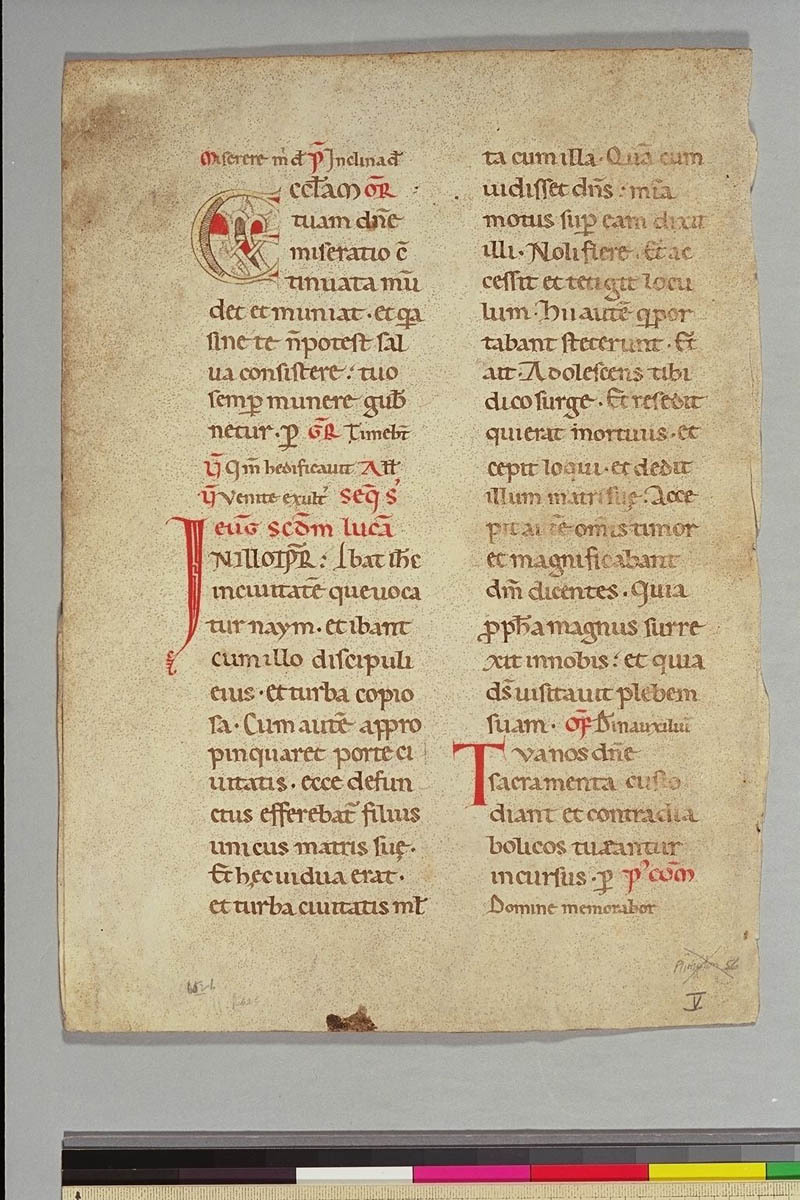 Miserere m̄ d̄ P̄ Inclina d̄
Eccl̄am OR̄
tuam dn̄e
miseratio c̄
tinuata mū
det et muniat · et qa
sine te n̄ potest sal
ua consistere : tuo
semꝑ munere gub̄
netur · ꝑ GR̄ Timeb̄t
V̄ Qm̄ hedificauit All̄
V̄ Venite exult̄ Seq̄ s̄
euḡ scd̄m lucā
IN ILLO TP̄R : Ibat ih̄c
in ciuitatē que uoca
tur naym · et ibant
cum illo discipuli
eius · et turba copio
sa · Cum autē appro
pinquaret porte ci
uitatis · ecce defun
ctus efferebat̄ filius
unicus matris suę ·
Et hęc uidua erat ·
et turba ciuitatis ml̄
ta cum illa · Quā cum
uidisset dn̄s : mīa
motus suꝑ eam dixit
illi · Noli flere · Et ac
cessit et tetigit locu
lum · Hii autē q̄ por
tabant steterunt · Et
ait · Adolescens tibi
dico surge · Et resedit
qui erat mortuus · et
cepit loqui · et dedit
illum matri suę · Acce
pit autē om̄s timor
et magnificabant
dm̄ dicentes · Quia
ꝓph̄a magnus surre
xit in nobis : et quia
ds̄ uisitauit plebem
suam · OF̄ D̄ in auxiliū
Tua nos dn̄e
sacramenta custo
diant et contra dia
bolicos tueantur
incursus · ꝑ P' COM̄
Domine memorabor
V